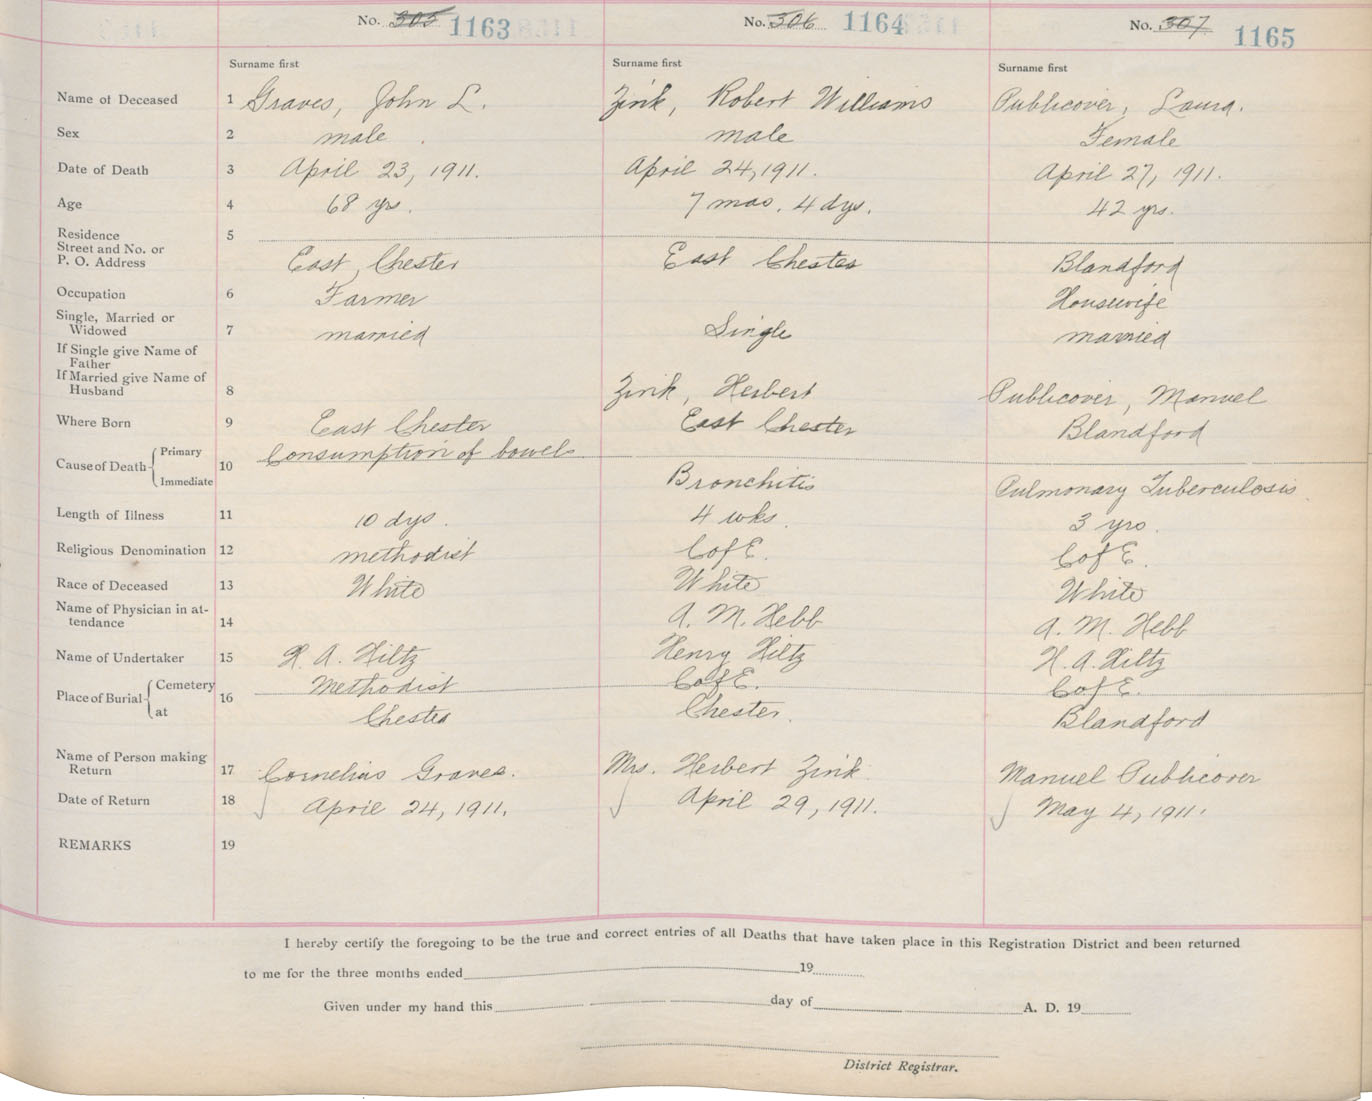 No. 305 1163 No. 306 1164 No. 307 1165
Surname first Surname first Surname first
Name of Deceased 1 Graves, John L. Zink, Robert Williams Publicover, Laura.
Sex 2 male. male Female
Date of Death 3 April 23, 1911. April 24, 1911. April 27, 1911.
Age 4 68 yrs. 7 mos. 4 dys. 42 yrs.
Residence 5
Street and No. or
P. O. Address East Chester East Chester Blandford
Occupation 6 Farmer Housewife
Single, Married or
Widowed 7 married Single married
If Single give Name of
Father
If Married give Name of
Husband 8 Zink, Herbert Publicover, Manuel
Where Born 9 East Chester East Chester Blandford
Cause of Death 10 Primary Consumption of bowels
Immediate Bronchitis Pulmonary Tuberculosis
Length of Illness 11 10 dys. 4 wks. 3 yrs.
Religious Denomination 12 methodist C of E. C of E.
Race of Deceased 13 White White White
Name of Physician in at-
tendance 14 A. M. Hebb A. M. Hebb
Name of Undertaker 15 H. A. Hiltz Henry Hiltz H. A. Hiltz
Place of Burial 16 Cemetery Methodist C of E. C of E.
at Chester Chester. Blandford
Name of Person making
Return 17 Cornelius Graves. Mrs. Herbert Zink Manuel Publicover
Date of Return 18 April 24, 1911. April 29, 1911. May 4, 1911.
REMARKS 19
I hereby certify the foregoing to be the true and correct entries of all Deaths that have taken place in this Registration District and been returned
to me for the three months ended 19
Given under my hand this day of A. D. 19
District Registrar.